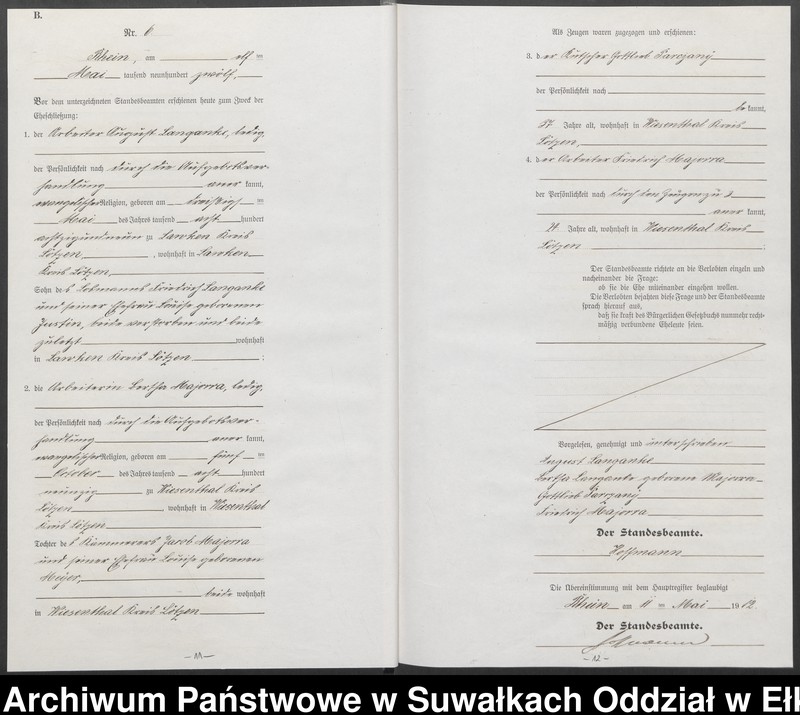 B.
Nr. 6
Rhein, am elf ten
Mai tausend neunhundert zwölf,
Vor dem unterzeichneten Standesbeamten erschienen heute zum Zweck der
Eheschließung:
1. der Arbeiter August Langanke, ledig,
der Persönlichkeit nach durch die Aufgebotsver-
handlung aner kannt,
evangelischer Religion, geboren am dreißigs ten
Mai des Jahres tausend acht hundert
achtzigundneun zu Lawken Kreis
Lötzen, wohnhaft in Lawken
Kreis Lötzen,
Sohn des Losmanns Friedrich Langanke
und seiner Ehefrau Louise geborenen
Justin, beide verstorben und beide
zuletzt wohnhaft
in Lawken Kreis Lötzen ;
2. die Arbeiterin Bertha Majorra, ledig,
der Persönlichkeit nach durch die Aufgebotsver-
handlung aner kannt,
evangelischer Religion, geboren am fünf ten
October des Jahres tausend acht hundert
neunzig zu Wiesenthal Kreis
Lötzen, wohnhaft in Wiesenthal
Kreis Lötzen
Tochter des Kämmerers Jacob Majorra
und seiner Ehefrau Louise geborenen
Meyer,
beide wohnhaft
in Wiesenthal Kreis Lötzen
- 11 -
Als Zeugen waren zugezogen und erschienen:
3. der Kutscher Gottlieb Parczany
der Persönlichkeit nach
be kannt,
57 Jahre alt, wohnhaft in Wiesenthal Kreis
Lötzen,
4. der Arbeiter Friedrich Majorra
der Persönlichkeit nach durch den Zeugen zu 3
aner kannt,
24 Jahre alt, wohnhaft in Wiesenthal Kreis
Lötzen ;
Der Standesbeamte richtete an die Verlobten einzeln und
nacheinander die Frage:
ob sie die Ehe miteinander eingehen wollen.
Die Verlobten bejahten diese Frage und der Standesbeamte
sprach hierauf aus,
daß sie kraft des Bürgerlichen Gesetzbuchs nunmehr recht-
mäßig verbundene Eheleute seien.
Vorgelesen, genehmigt und unterschrieben
August Langanke
Bertha Langanke geborene Majorra
Gottlieb Parczany
Friedrich Majorra
Der Standesbeamte.
Hoffmann
Die Übereinstimmung mit dem Hauptregister beglaubigt
Rhein am 11 ten Mai 1912.
Der Standesbeamte.
- 12 -
Archiwum Państwowe w Suwałkach Oddział w Ełk